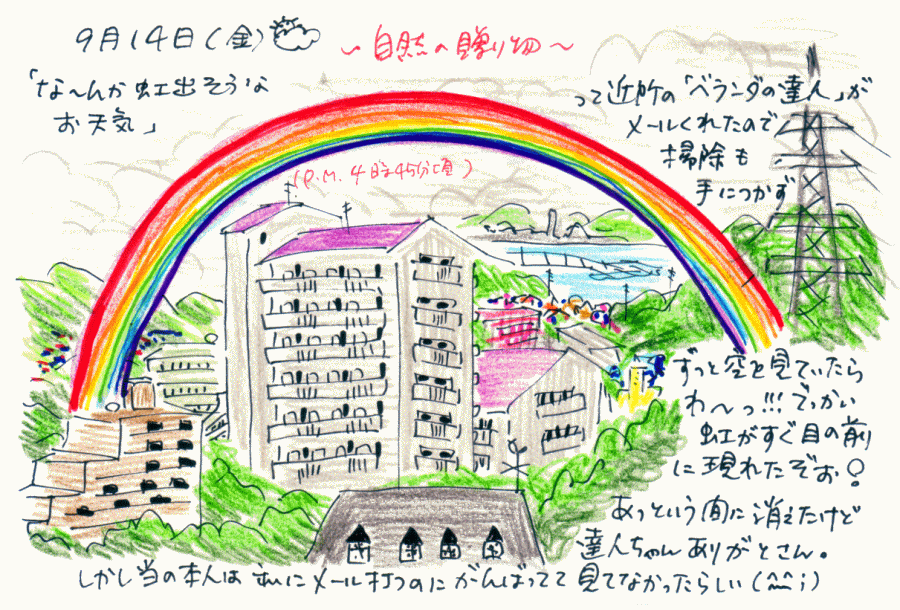 9月14日(金)
〜自然の贈り物〜
「な〜んか虹出そうな
お天気」
って近所の「ベランダの達人」が
メールくれたので
掃除も
手につかず
(P.M. 4時45分頃)
ずっと空を見ていたら
わ〜っ!!!でっかい
虹がすぐ目の前
に現れたぞぉ!
あっという間に消えたけど
達人ちゃんありがとさん。
しかし当の本人は メール打つのにがんばってて見てなかったらしい(^^;)